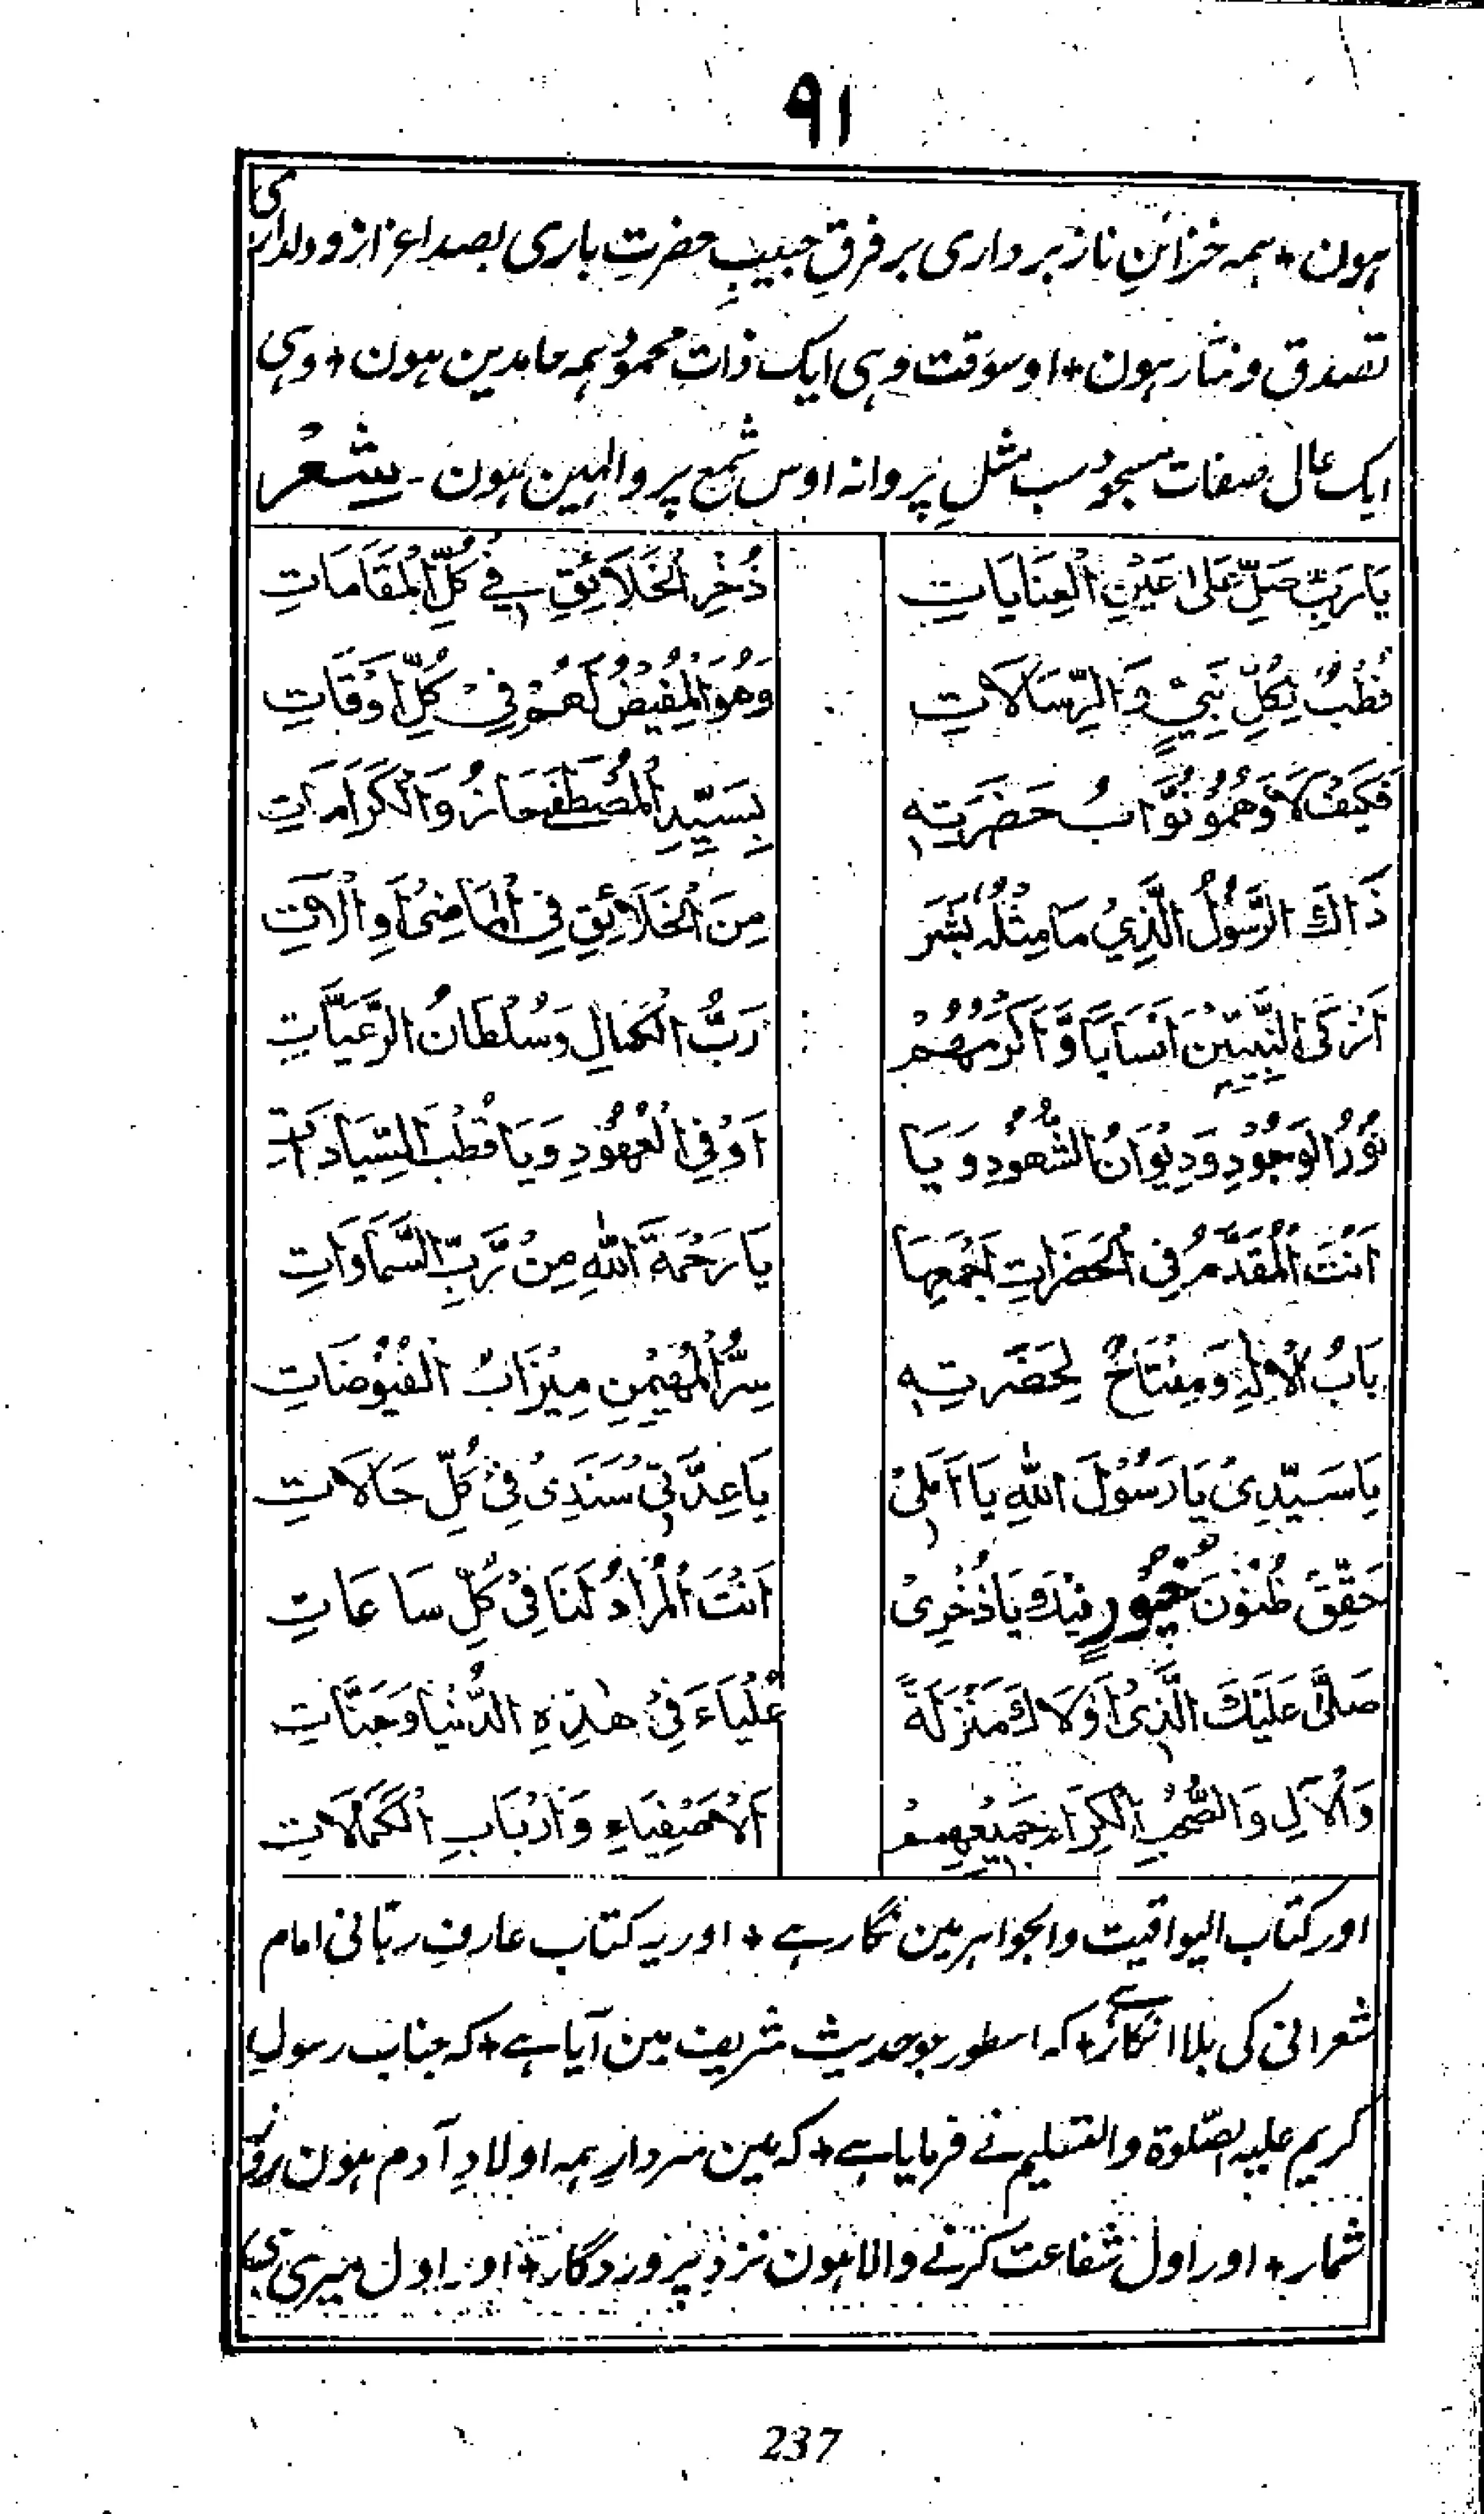 ۹۱
ہون + ہمہ خزائنِ ناز برداری بر فرقِ حبیبِ حضرتِ باری بصد اعزاز و دلداری
تصدق و نثار ہون + اوسوقت وہی ایک ذاتِ محمودُ ہمہ حامدین ہون + وہی
ایک عالی صفات مسجودُ سب مثلِ پروانہ اوس شمع پر والہین ہون ۔ شعر
يَارَبِّ صَلِّ عَلٰى عَيْنِ الْعِنَايَاتِ ذُخْرِ الْخَلَائِقِ فِي كُلِّ الْمَقَامَاتِ
قُطْبٌ لِكُلِّ نَبِيٍّ وَالرِّسَالَاتِ وَهُوَ الْمُفِيْضُ لَهُمْ فِيْ كُلِّ اَوْقَاتِ
فَكَيْفَ لَا وَهُمُوْ نُوَّابُ حَضْرَتِهٖ بِسَيِّدِ الْمُصْطَفٰى حَازُوْ الْكَرَامَاتِ
ذَاكَ الرَّسُوْلُ الَّذِيْ مَا مِثْلُهُ بَشَرٌ مِنَ الْخَلَائِقِ فِي الْمَاضِيْ اَوِ الْاٰتِ
اَزْكَى النَّبِيِّيْنَ اَنْسَابًا وَّ اَكْرَمُهُمْ رَبُّ الْكَمَالِ وَسُلْطَانُ الرَّعِيَّاتِ
نُوْرُ الْوَجُوْدِ وَدِيْوَانُ الشُّهُوْدِ وَيَا اَوْفِي الْعُهُوْدِ وَيَا قُطْبَ السِّيَادَاتِ
اَنْتَ الْمُقَدَّمُ فِي الْحَضَرَاتِ اَجْمَعِهَا يَارَحْمَةَ اللّٰهِ مِنْ رَّبِّ السَّمَاوَاتِ
بَابُ الْاِلٰهِ وَمِفْتَاحٌ لِحَضْرَتِهٖ سِرُّ الْمُهَيْمِنِ مِيْزَابُ الْفُيُوْضَاتِ
يَاسَيِّدِيْ يَارَسُوْلَ اللّٰهِ يَا اَمَلِيْ يَاعِدَّتِيْ سَنَدِيْ فِيْ كُلِّ حَالَاتِ
حَقِّقْ ظُنُوْنَ فِيْكَ يَاذُخْرِيْ اَنْتَ الْمُرَادُ لَنَا فِيْ كُلِّ سَاعَاتِ
صَلّٰى عَلَيْكَ الَّذِيْ اَوْلَاكَ مَنْزِلَةً عُلْيَاءَ فِيْ هٰذِهِ الدُّنْيَا وَجَنَّاتِ
وَالْاٰلِ وَالصَّحْبِ الْكِرَامِ جَمِيْعِهِمْ اَلْاَصْفِيَاءِ وَاَرْبَابِ الْكَمَالَاتِ
اور کتاب الیواقیت والجواہر مین نگار ہے + اور یہ کتاب عارفِ ربّانی امام
شعرانی کی بلا انکار ہے + کہ اسطور جو حدیث شریف مین آیا ہے + کہ جناب رسول
کریم علیہ الصّلوۃ والتسلیم نے فرمایا ہے + کہ مین سردار ہمہ اولادِ آدم ہون روز
شمار + اور اول شفاعت کرنے والا ہون نزدِ پروردگار + اور اول میری ہی
237